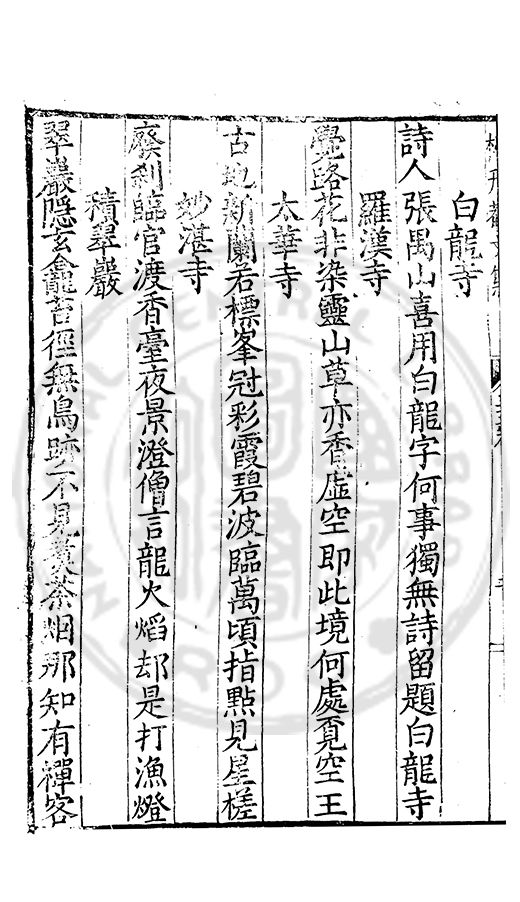 白龍寺
詩人張禺山喜用白龍字何事獨無詩留題白龍寺
羅漢寺
覺路花非染靈山草亦香虛空即此境何處覓空王
太華寺
古地新蘭若標峯冠彩霞碧波臨萬頃指點見星槎
妙湛寺
廢刹臨官渡香臺夜景澄僧言龍火熖却是打漁燈
積翠巖
翠巖隱玄龕苔徑無鳥跡不見煑茶烟那知有禪客